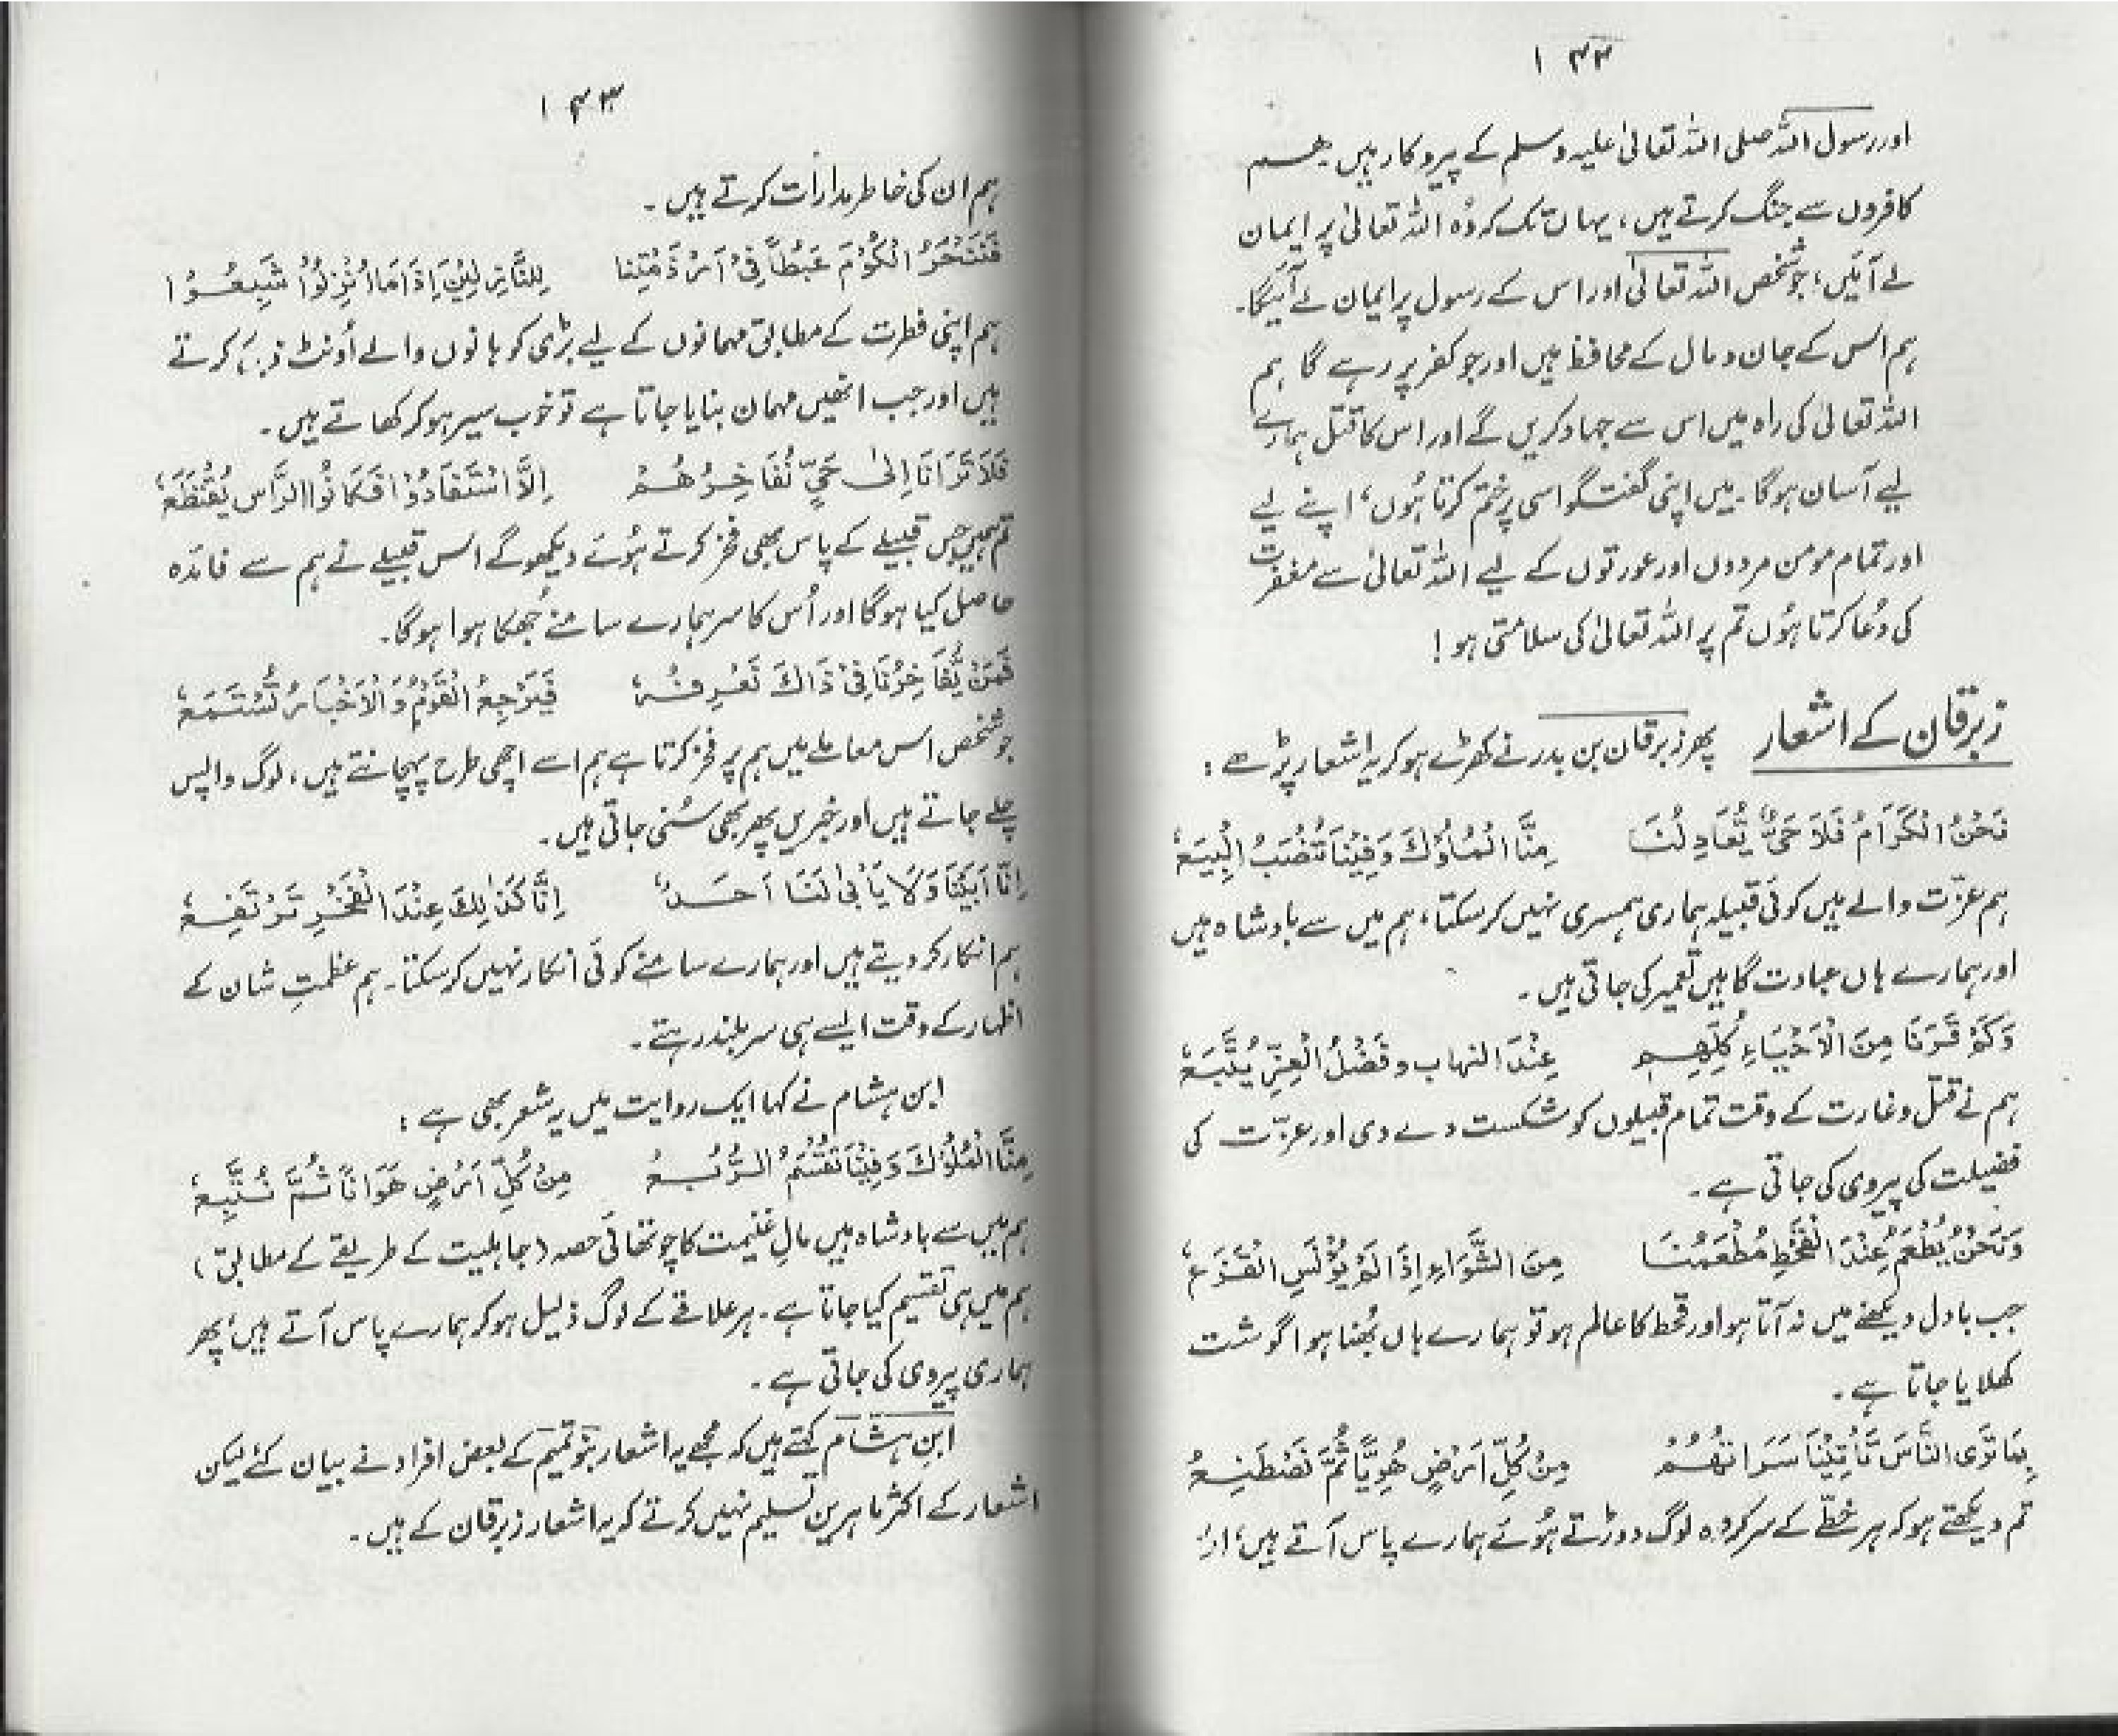 ۱۴۲
اور رسول اللہ صلی اللہ تعالیٰ علیہ وسلم کے پیروکار ہیں۔ ہم
کافروں سے جنگ کرتے ہیں، یہاں تک کہ وُہ اللہ تعالیٰ پر ایمان
لے آئیں؛ جو شخص اللہ تعالیٰ اور اس کے رسول پر ایمان لے آئیگا۔
ہم اس کے جان و مال کے محافظ ہیں اور جو کفر پر رہے گا ہم
اللہ تعالیٰ کی راہ میں اس سے جہاد کریں گے اور اس کا قتل ہمارے
لیے آسان ہوگا۔ میں اپنی گفتگو اسی پر ختم کرتا ہُوں، اپنے لیے
اور تمام مومن مردوں اور عورتوں کے لیے اللہ تعالیٰ سے مغفرت
کی دُعا کرتا ہُوں تم پر اللہ تعالیٰ کی سلامتی ہو!
زبرقان کے اشعار پھر زبرقان بن بدر نے کھڑے ہو کر یہ اشعار پڑھے:
نَحْنُ الْكَرَامُ فَلَا حَيٌّ يُعَادِلُنَا مِنَّا الْمُلُوْكُ وَفِيْنَا تُنْصَبُ الْبِيَعُ
ہم عزّت والے ہیں کوئی قبیلہ ہماری ہمسری نہیں کر سکتا، ہم میں سے بادشاہ ہیں
اور ہمارے ہاں عبادت گاہیں تعمیر کی جاتی ہیں۔
وَكَمْ قَسَرْنَا مِنَ الْاَحْيَاءِ كُلِّهِم عِنْدَ النهاب وفَضْلُ الْعِزِّ يُتَّبَعُ
ہم نے قتل و غارت کے وقت تمام قبیلوں کو شکست دے دی اور عزّت کی
فضیلت کی پیروی کی جاتی ہے۔
وَنَحْنُ يُطْعَمُ عِنْدَ الْقَحْطِ مُطْعَمُنَا مِنَ الشَّوَاءِ اِذَا لَمْ يُؤْنَسِ الْقَزَعُ
جب بادل دیکھنے میں نہ آتا ہو اور قحط کا عالم ہو تو ہمارے ہاں بُھنا ہوا گوشت
کھلایا جاتا ہے۔
بِمَا تَرَى النَّاسَ تَأْتِيْنَا سَرَاتُهُمْ مِنْ كُلِّ اَرْضٍ هُوِيًّا ثُمَّ نَصْطَنِعُ
تم دیکھتے ہو کہ ہر خطّے کے سرکردہ لوگ دوڑتے ہُوئے ہمارے پاس آتے ہیں، اور
۱۴۳
ہم ان کی خاطر مدارات کرتے ہیں۔
فَنَنْحَرُ الْكُوْمَ عَبْطًا فِيْ اَرُوْمَتِنَا لِلنَّازِلِيْنَ اِذَا مَا اُنْزِلُوْا شَبِعُوْا
ہم اپنی فطرت کے مطابق مہمانوں کے لیے بڑی کوہانوں والے اُونٹ ذبح کرتے
ہیں اور جب انھیں مہمان بنایا جاتا ہے تو خوب سیر ہو کر کھاتے ہیں۔
فَلَا تَرَانَا اِلىٰ حَيٍّ نُفَاخِرُهُمْ اِلَّا اسْتَفَادُوْا فَكَانُوا الرَّاْس يُقْتَطَعُ
تم ہمیں جس قبیلے کے پاس بھی فخر کرتے ہُوئے دیکھو گے اس قبیلے نے ہم سے فائدہ
حاصل کیا ہوگا اور اُس کا سر ہمارے سامنے جُھکا ہوا ہوگا۔
فَمَنْ يُّفَاخِرُنَا فِيْ ذَاكَ نَعْرِفُهٗ فَيَرْجِعُ الْقَوْمُ وَالْاَخْبَارُ تُسْتَمَعُ
جو شخص اس معاملے میں ہم پر فخر کرتا ہے ہم اسے اچھی طرح پہچانتے ہیں، لوگ واپس
چلے جاتے ہیں اور خبریں پھر بھی سُنی جاتی ہیں۔
اِنَّا اَبَيْنَا وَلَا يَأْبىٰ لَنَا اَحَدٌ اِنَّا كَذٰلِكَ عِنْدَ الْفَخْرِ نَرْتَفِعُ
ہم انکار کر دیتے ہیں اور ہمارے سامنے کوئی انکار نہیں کر سکتا۔ ہم عظمتِ شان کے
اظہار کے وقت ایسے ہی سر بلند رہتے۔
ابن ہشام نے کہا ایک روایت میں یہ شعر بھی ہے:
مِنَّا الْمُلُوْكُ وَفِيْنَا تُقْسَمُ الرُّبُعُ مِنْ كُلِّ اَرْضٍ هَوَانًا ثُمَّ نُتَّبِعُ
ہم میں سے بادشاہ ہیں مالِ غنیمت کا چوتھائی حصہ (جاہلیت کے طریقے کے مطابق)
ہم میں ہی تقسیم کیا جاتا ہے۔ ہر علاقے کے لوگ ذلیل ہو کر ہمارے پاس آتے ہیں، پھر
ہماری پیروی کی جاتی ہے۔
ابن ہشام کہتے ہیں کہ مجھے یہ اشعار بنو تمیم کے بعض افراد نے بیان کئے لیکن
اشعار کے اکثر ماہرین تسلیم نہیں کرتے کہ یہ اشعار زبرقان کے ہیں۔